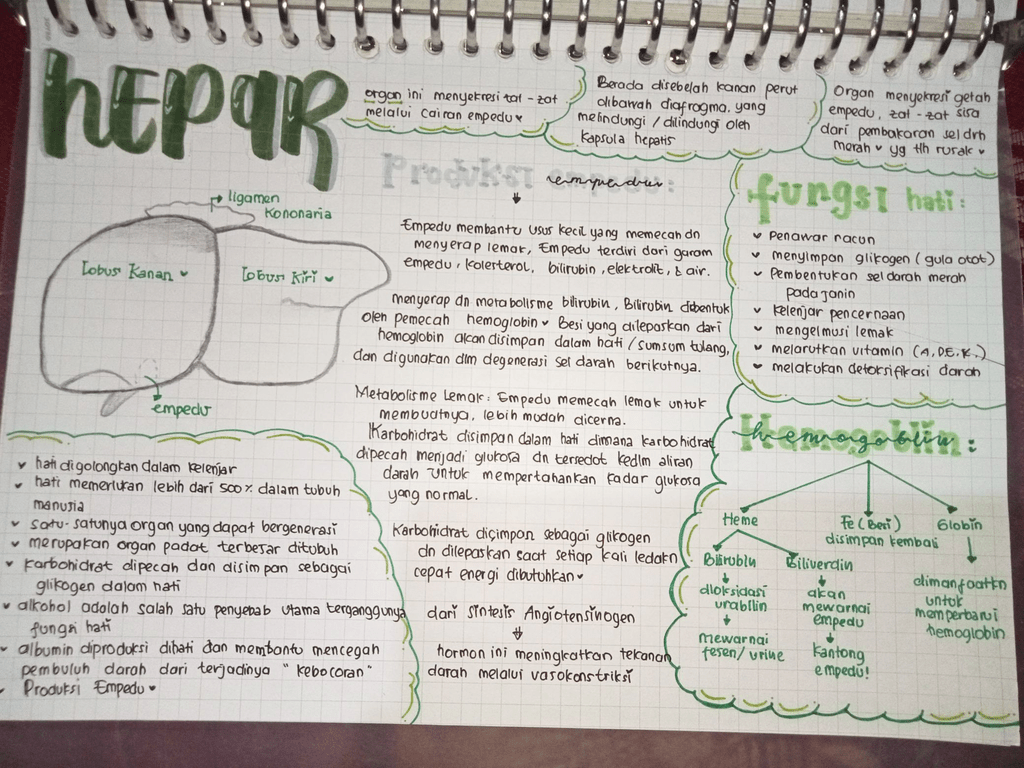 HEPAR
organ ini menyekresi zat-zat
melalui cairan empedu
Berada disebelah kanan perut
dibawah diafragma. yang
melindungi / dilindungi oleh
kapsula hepatis
Organ menyekresi getah
empedu, zat-zat sisa
dari pembakaran sel drh
merah yg tlh rusak
ligamen
Kononaria
Lobus Kanan
Lobus Kiri
empedu
Produksi empedu:
Empedu membantu usus kecil yang memecah dn
menyerap lemak, Empedu terdiri dari garam
empedu, kolesterol, bilirubin, elektrolit, & air.
menyerap dn metabolisme bilirubin, Bilirubin dibentuk
oleh pemecah hemoglobin Besi yang dilepaskan dari
hemoglobin akan disimpan dalam hati / sumsum tulang,
dan digunakan dlm degenerasi sel darah berikutnya.
Metabolisme Lemak: Empedu memecah lemak untuk
membuatnya, lebih mudah dicerna.
Karbohidrat disimpan dalam hati dimana karbohidrat
dipecah menjadi glukosa dn tersedot kedlm aliran
darah untuk mempertahankan kadar glukosa
yang normal.
Karbohidrat dicimpan sebagai glikogen
dn dilepaskan saat setiap kali ledakn
cepat energi dibutuhkan
dari sintesis Angiotensinogen
hormon ini meningkatkan tekanan
darah melalui vasokonstriksi
fungsi hati:
Penawar racun
menyimpan glikogen (gula otot)
Pembentukan sel darah merah
pada janin
kelenjar pencernaan
mengelmusi lemak
melarutkan vitamin (A,D,E,K,)
melakukan detoksifikasi darah
Hemogoblin:
Heme
Fe (Besi)
disimpan kembali
Globin
Bilirubin
dioksidasi
urabilin
mewarnai
fesen/urine
Biliverdin
akan
mewarnai
empedu
kantong
empedu!
dimanfaatkn
untuk
memperbarui
hemoglobin
hati digolongkan dalam kelenjar
hati memerlukan lebih dari 500% dalam tubuh
manusia
satu-satunya organ yang dapat bergenerasi
merupakan organ padat terbesar ditubuh
karbohidrat dipecah dan disimpan sebagai
glikogen dalam hati
alkohol adalah salah satu penyebab utama terganggunya
fungsi hati
albumin diproduksi dihati dan membantu mencegah
pembuluh darah dari terjadinya "kebocoran"
Produksi Empedu